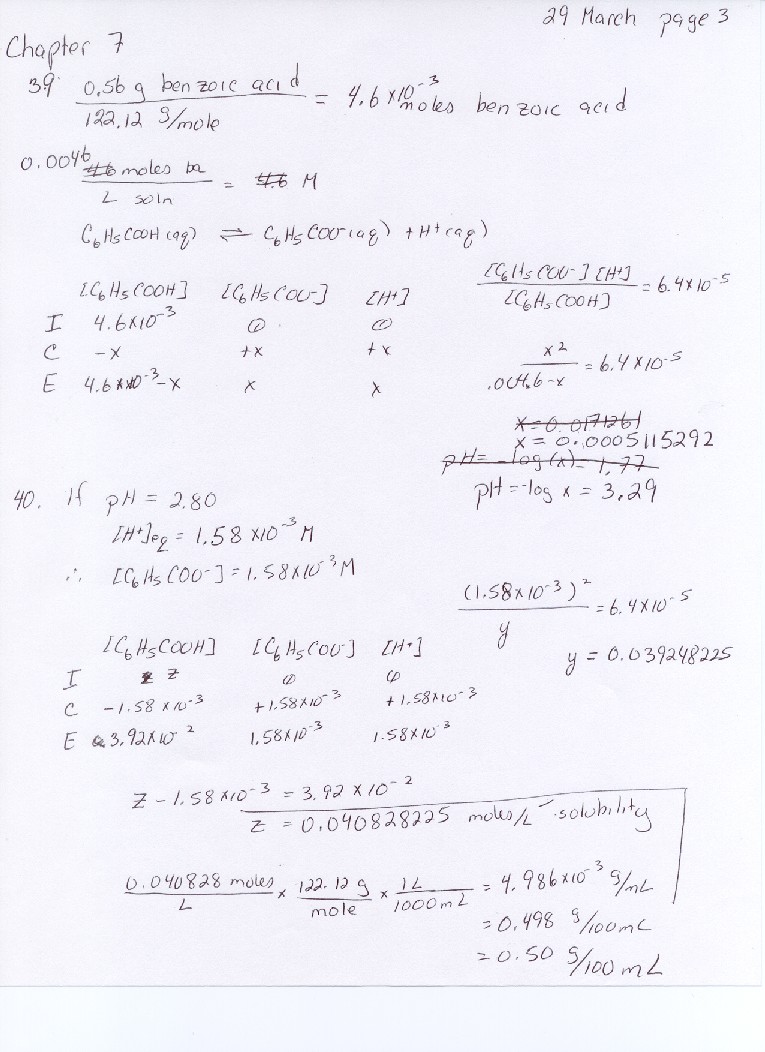 29 March page 3
Chapter 7
39. 0.56 g benzoic acid / 122.12 g/mole = 4.6 x 10⁻³ moles benzoic acid
0.0046 moles ba / L soln = M
C₆H₅COOH (aq) ⇌ C₆H₅COO⁻(aq) + H⁺(aq)
[C₆H₅COO⁻] [H⁺] / [C₆H₅COOH] = 6.4 x 10⁻⁵
[C₆H₅COOH] [C₆H₅COO⁻] [H⁺]
I 4.6x10⁻³ 0 0
C -x +x +x
E 4.6 x 10⁻³-x x x
x² / .0046-x = 6.4 x 10⁻⁵
x = 0.0171261
x = 0.0005115292
pH = -log(x) = 1.77
pH = -log x = 3.29
40. If pH = 2.80
[H⁺]eq = 1.58 x10⁻³ M
∴ [C₆H₅COO⁻] = 1.58x10⁻³ M
(1.58x10⁻³)² / y = 6.4 x 10⁻⁵
y = 0.039248225
[C₆H₅COOH] [C₆H₅COO⁻] [H⁺]
I z 0 0
C -1.58 x10⁻³ +1.58x10⁻³ +1.58x10⁻³
E 3.92x10⁻² 1.58x10⁻³ 1.58x10⁻³
z - 1.58x10⁻³ = 3.92 x 10⁻²
z = 0.040828225 moles/L - solubility
0.040828 moles / L x 122.12 g / mole x 1L / 1000mL = 4.986x10⁻³ g/mL
= 0.498 g/100mL
= 0.50 g/100 mL